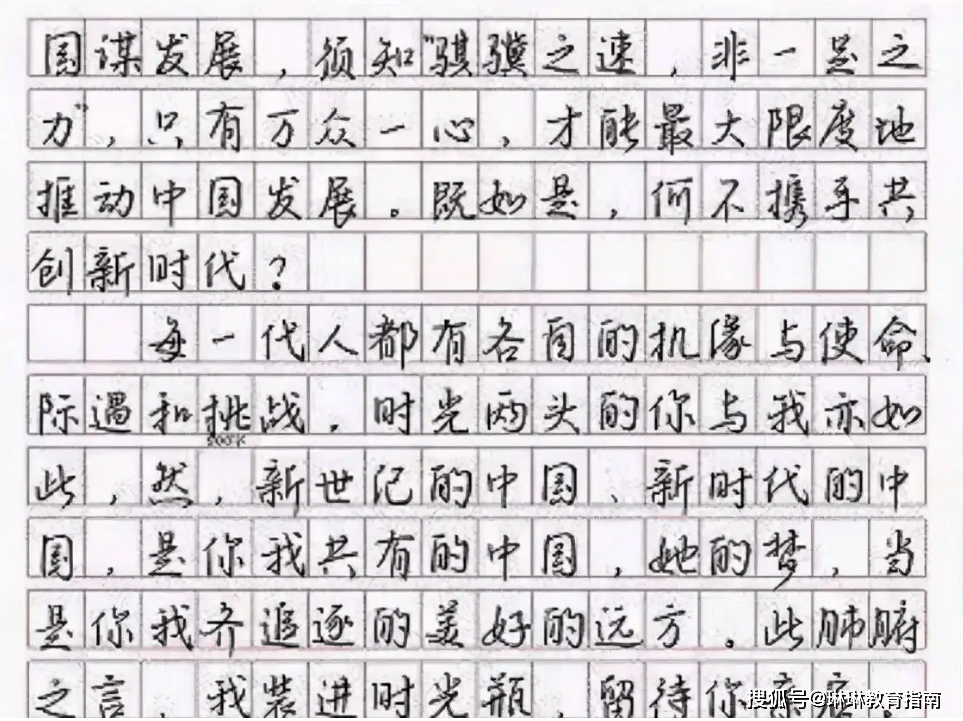 国谋发展，须知“骐骥之速，非一足之
力”，只有万众一心，才能最大限度地
推动中国发展。既如是，何不携手共
创新时代？
每一代人都有各自的机缘与使命、
际遇和挑战，时光两头的你与我亦如
800字
此，然，新世纪的中国、新时代的中
国，是你我共有的中国，她的梦，当
是你我齐追逐的美好的远方。此肺腑
之言，我装进时光瓶，留待你
搜狐号@琳琳教育指南